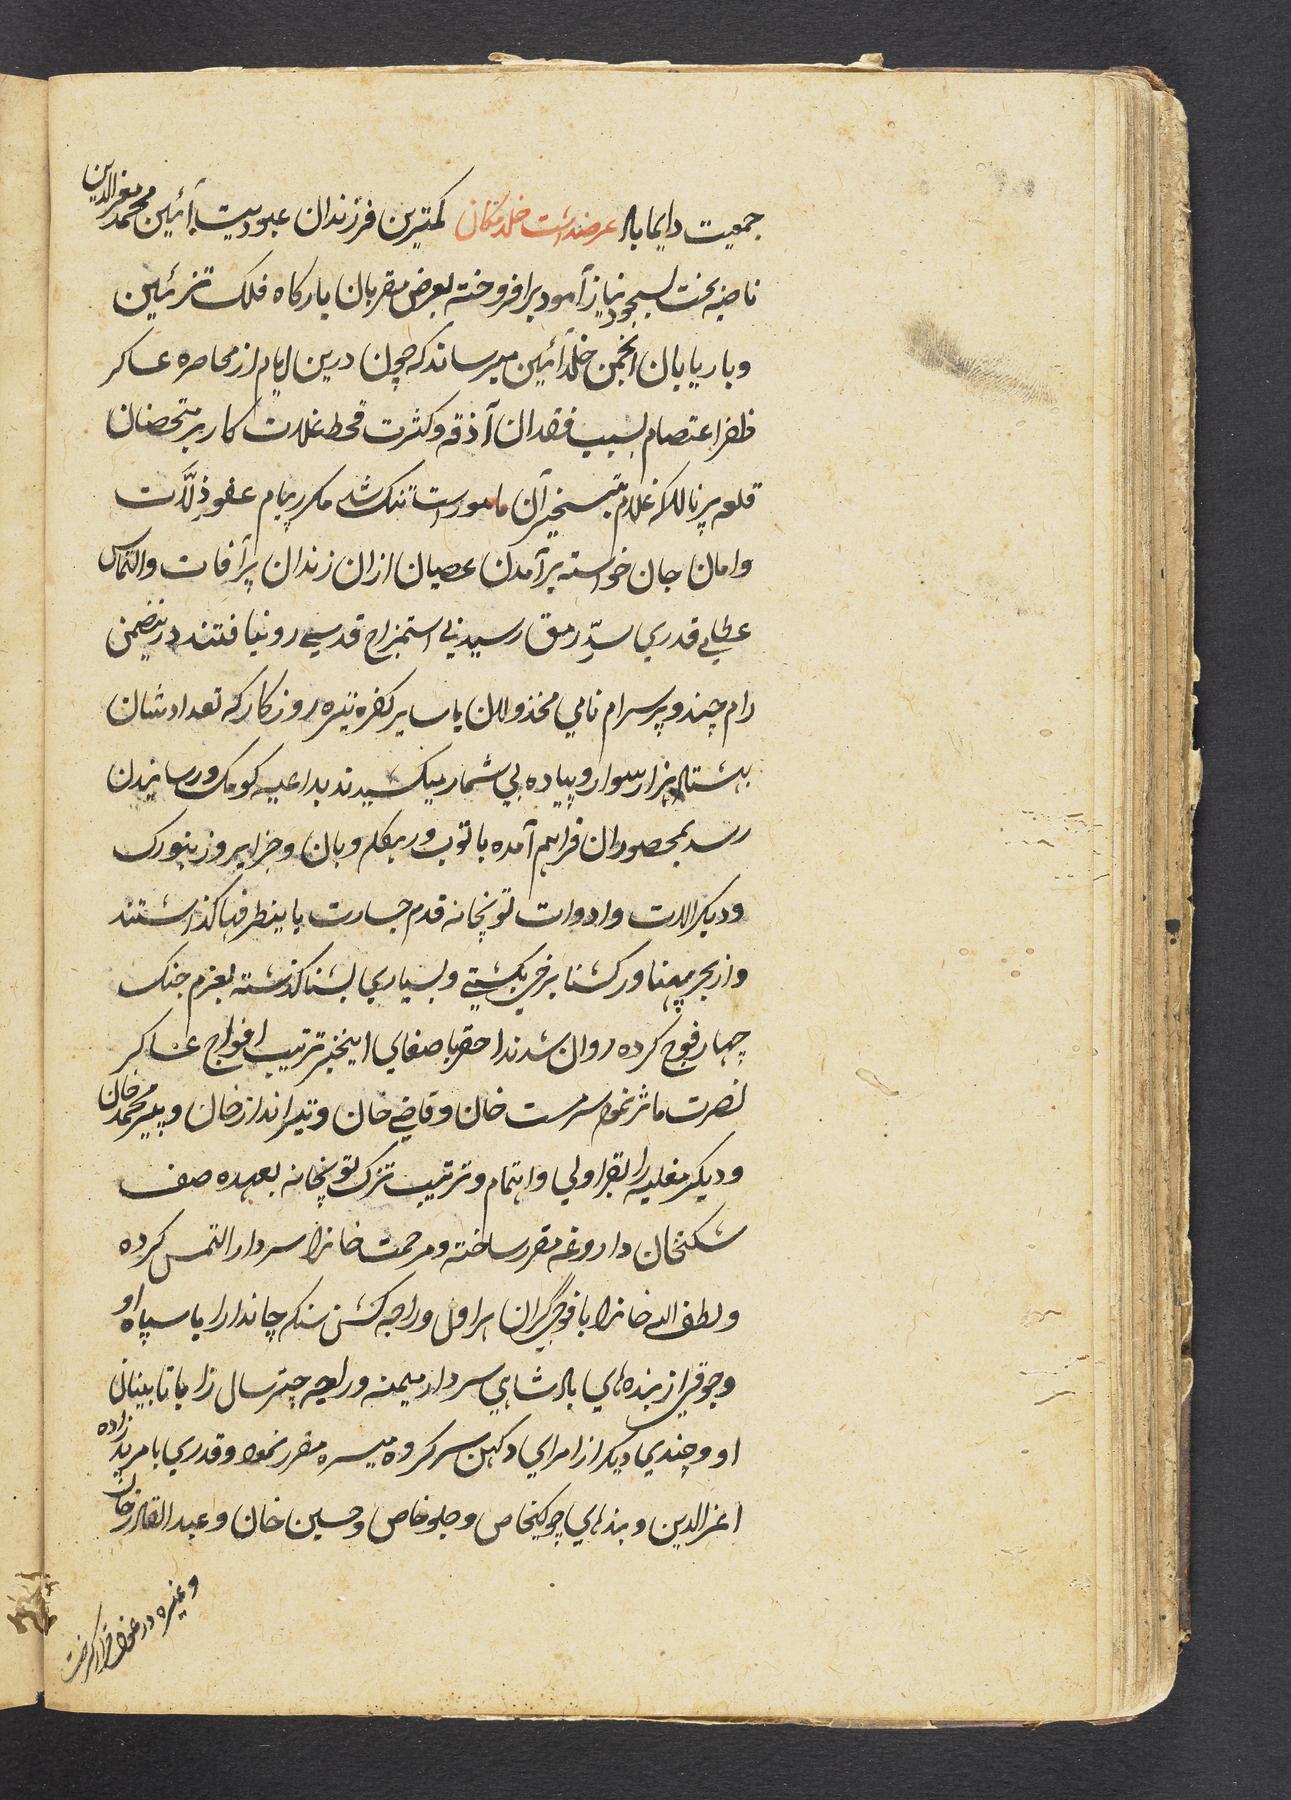 جمعیت دایما باد عرضداشت خلد مکان کمترین فرزندان عبودیت آئین محمد معز الدین
ناصیه بخت بسجود نیاز آمود برافروخته بعرض مقربان بارکاه فلک تزئین
و باریابان انجمن خلد آئین میرساند که چون درین ایام از محاصره عساکر
ظفر اعتصام بسبب فقدان آذقه و کثرت قحط غلات کار بر متحصنان
قلعه پرناله که غلام بتسخیر آن مامور است تنک شده مکرر پیام عفو ذلّات
و امان جان خواسته برآمدن عصیان ازان زندان پر آفات و التماس
عطای قدری سدّ رمق رسید بی استمزاج قدسی رو نیافتند درینضمن
رام چند و پرسرام نامی مخذولان با سایر کفره تیره روزکار که تعداد شان
بهشتاد هزار سوار و پیاده بی شمار میکشیدند بداعیه کومک و رسانیدن
رسد بمحصوران فراهم آمده با توب و رهکله و بان و جزایر و زنبورک
و دیکر الات و ادوات توپخانه قدم جسارت باینطرف کذاشتند
و از بحر پهناور کشنا برخی بکشتی و بسیاری بشنا کذشته بعزم جنک
چهار فوج کرده روان شدند احقر باصغای اینخبر ترتیب افواج عساکر
نصرت ماثر نموده سرمست خان و قاضی خان و تیر انداز خان و پیر محمد خان
و دیکر مغلیه را بقراولی و اهتمام و ترتیب تزک توپخانه بعهده صف
شکنخان داروغه مقرر ساخته و مرحمت خانرا سردار التمش کرده
و لطف الله خانرا با فوج گران هراول و راجه کشن سنکه چاندا را با سپاه او
و جوقی از بنده های بادشاهی سردار میمنه و راجه چترسال را با تابینان
او و چندی دیکر از امرای دکهن سرکروه میسره مقرر نموده و قدری با مرید زاده
اعز الدین و بندهای چوکیخاص و جلو خاص و حسین خان و عبد القادر خان
و غیره در غول قرار کرفت